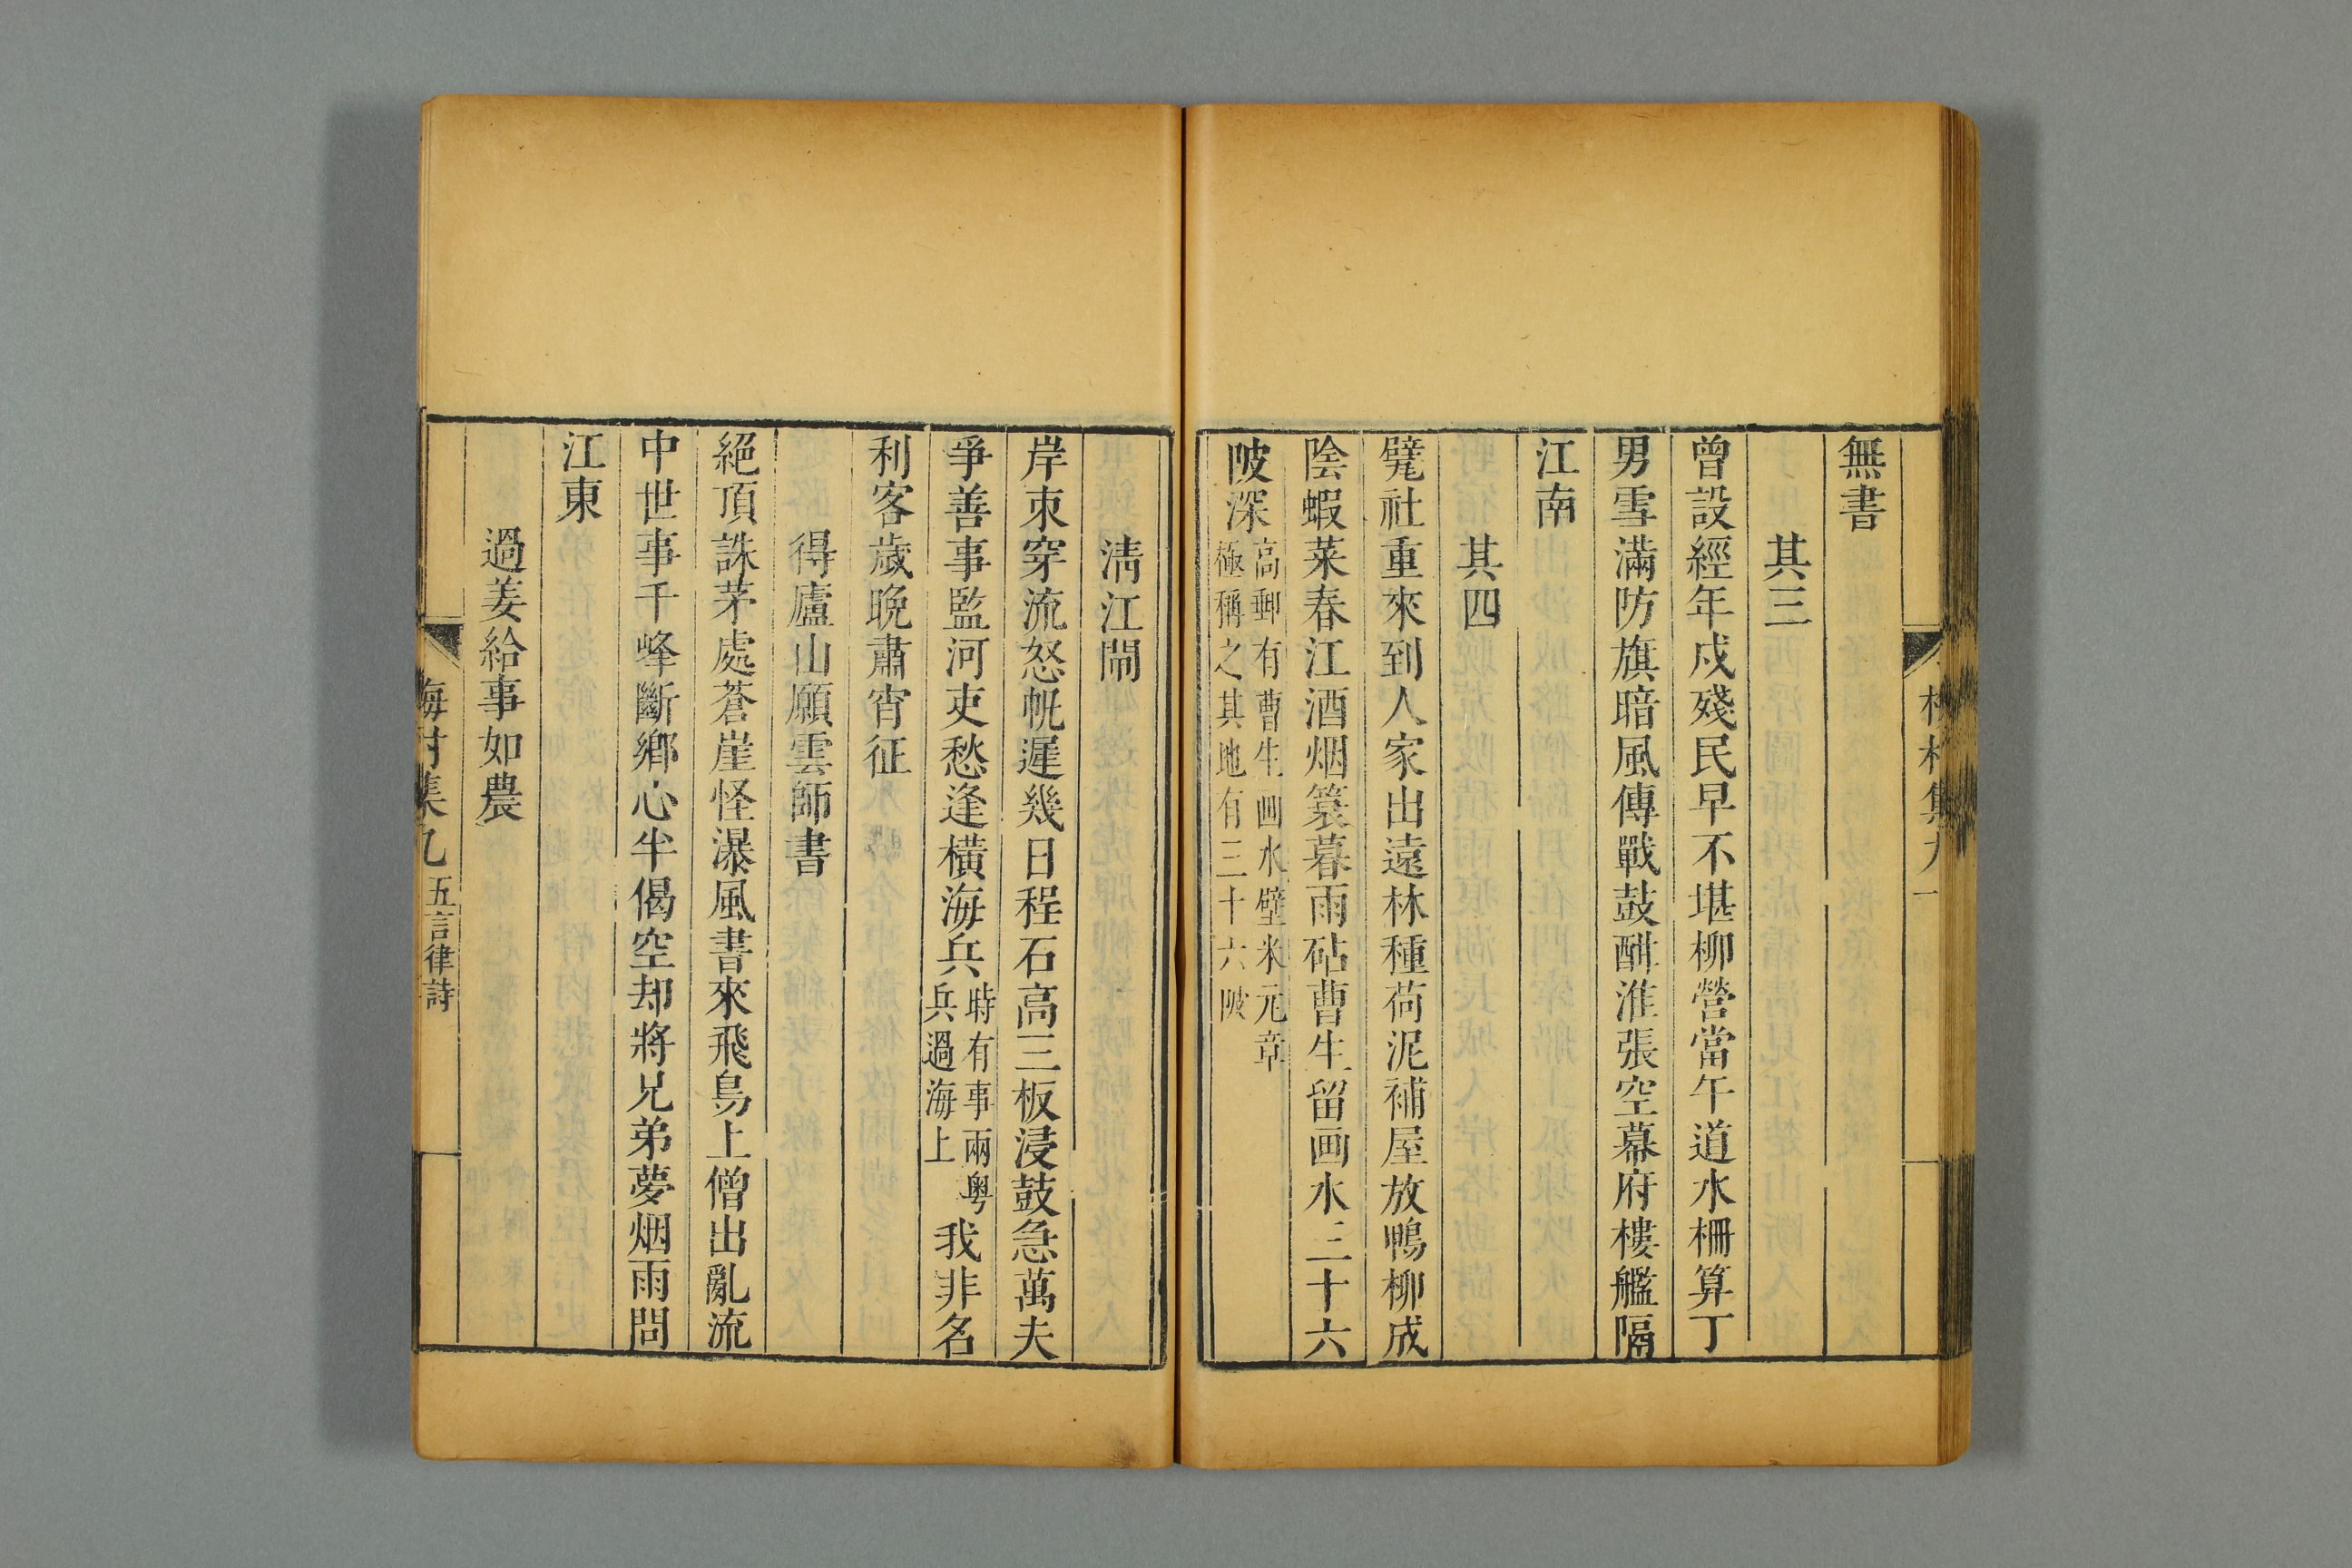 無書
其三
曾設經年戍殘民早不堪柳營當午道水柵算丁
男雪滿防旗暗風傳戰鼓酣淮張空幕府樓艦隔
江南
其四
甓社重來到人家出遠林種荷泥補屋放鴨柳成
陰蝦菜春江酒烟簑暮雨砧曹生留画水三十六
陂深高郵有曹生画水壁米元章
極稱之其地有三十六陂
清江閘
岸束穿流怒帆遲幾日程石高三板浸鼓急萬夫
爭善事監河吏愁逢橫海兵時有事兩粤
兵過海上我非名
利客歲晚肅宵征
得廬山願雲師書
絕頂誅茅處蒼崖怪瀑風書來飛鳥上僧出亂流
中世事千峰斷鄉心半偈空却將兄弟夢烟雨問
江東
過姜給事如農
梅村集九 五言律詩